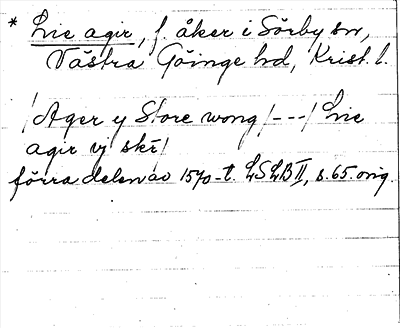 * Lie agir, f. åker i Sörby sn,
Västra Göinge hd, Krist. l.
/Ager y Store wong/---/Lie
agir vj skr/
förra delen av 1570-t. LSLB II, s. 65. orig.